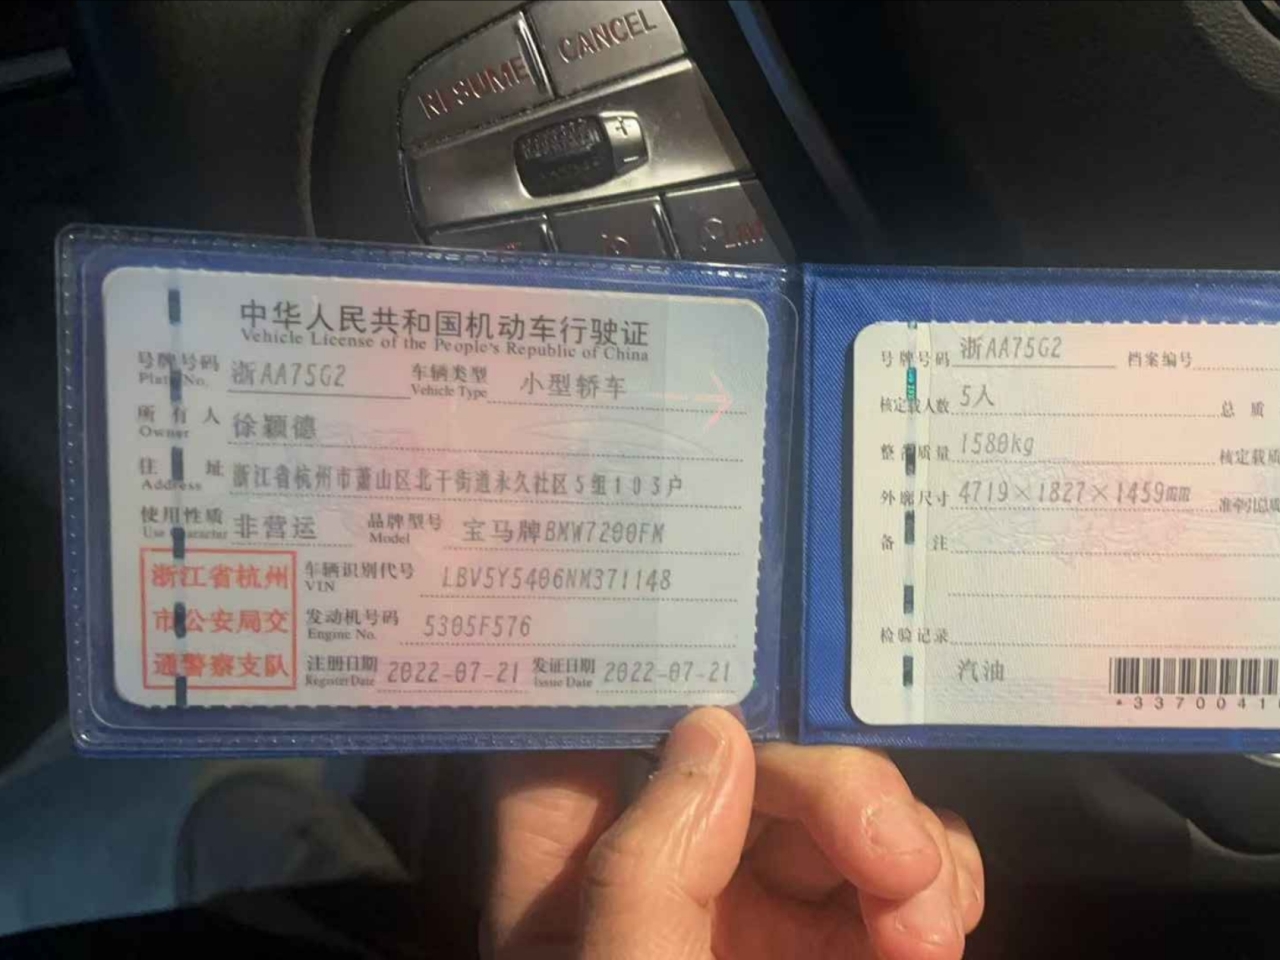 RESUME
CANCEL
+
LIM
中华人民共和国机动车行驶证
Vehicle License of the People's Republic of China
号牌号码 浙AA75G2 车辆类型 小型轿车
Plate No. Vehicle Type
所有人 徐颖德
Owner
住址 浙江省杭州市萧山区北干街道永久社区5组103户
Address
使用性质 非营运 品牌型号 宝马牌BMW7200FM
Use Character Model
浙江省杭州
市公安局交
通警察支队
车辆识别代号 LBV5Y5406NM371148
VIN
发动机号码 5305F576
Engine No.
注册日期 2022-07-21 发证日期 2022-07-21
Register Date Issue Date
号牌号码 浙AA75G2 档案编号
核定载人数 5人 总质
整备质量 1580kg 核定载质
外廓尺寸 4719×1827×1459mm 准牵引总质
备注
检验记录
汽油
*3370041